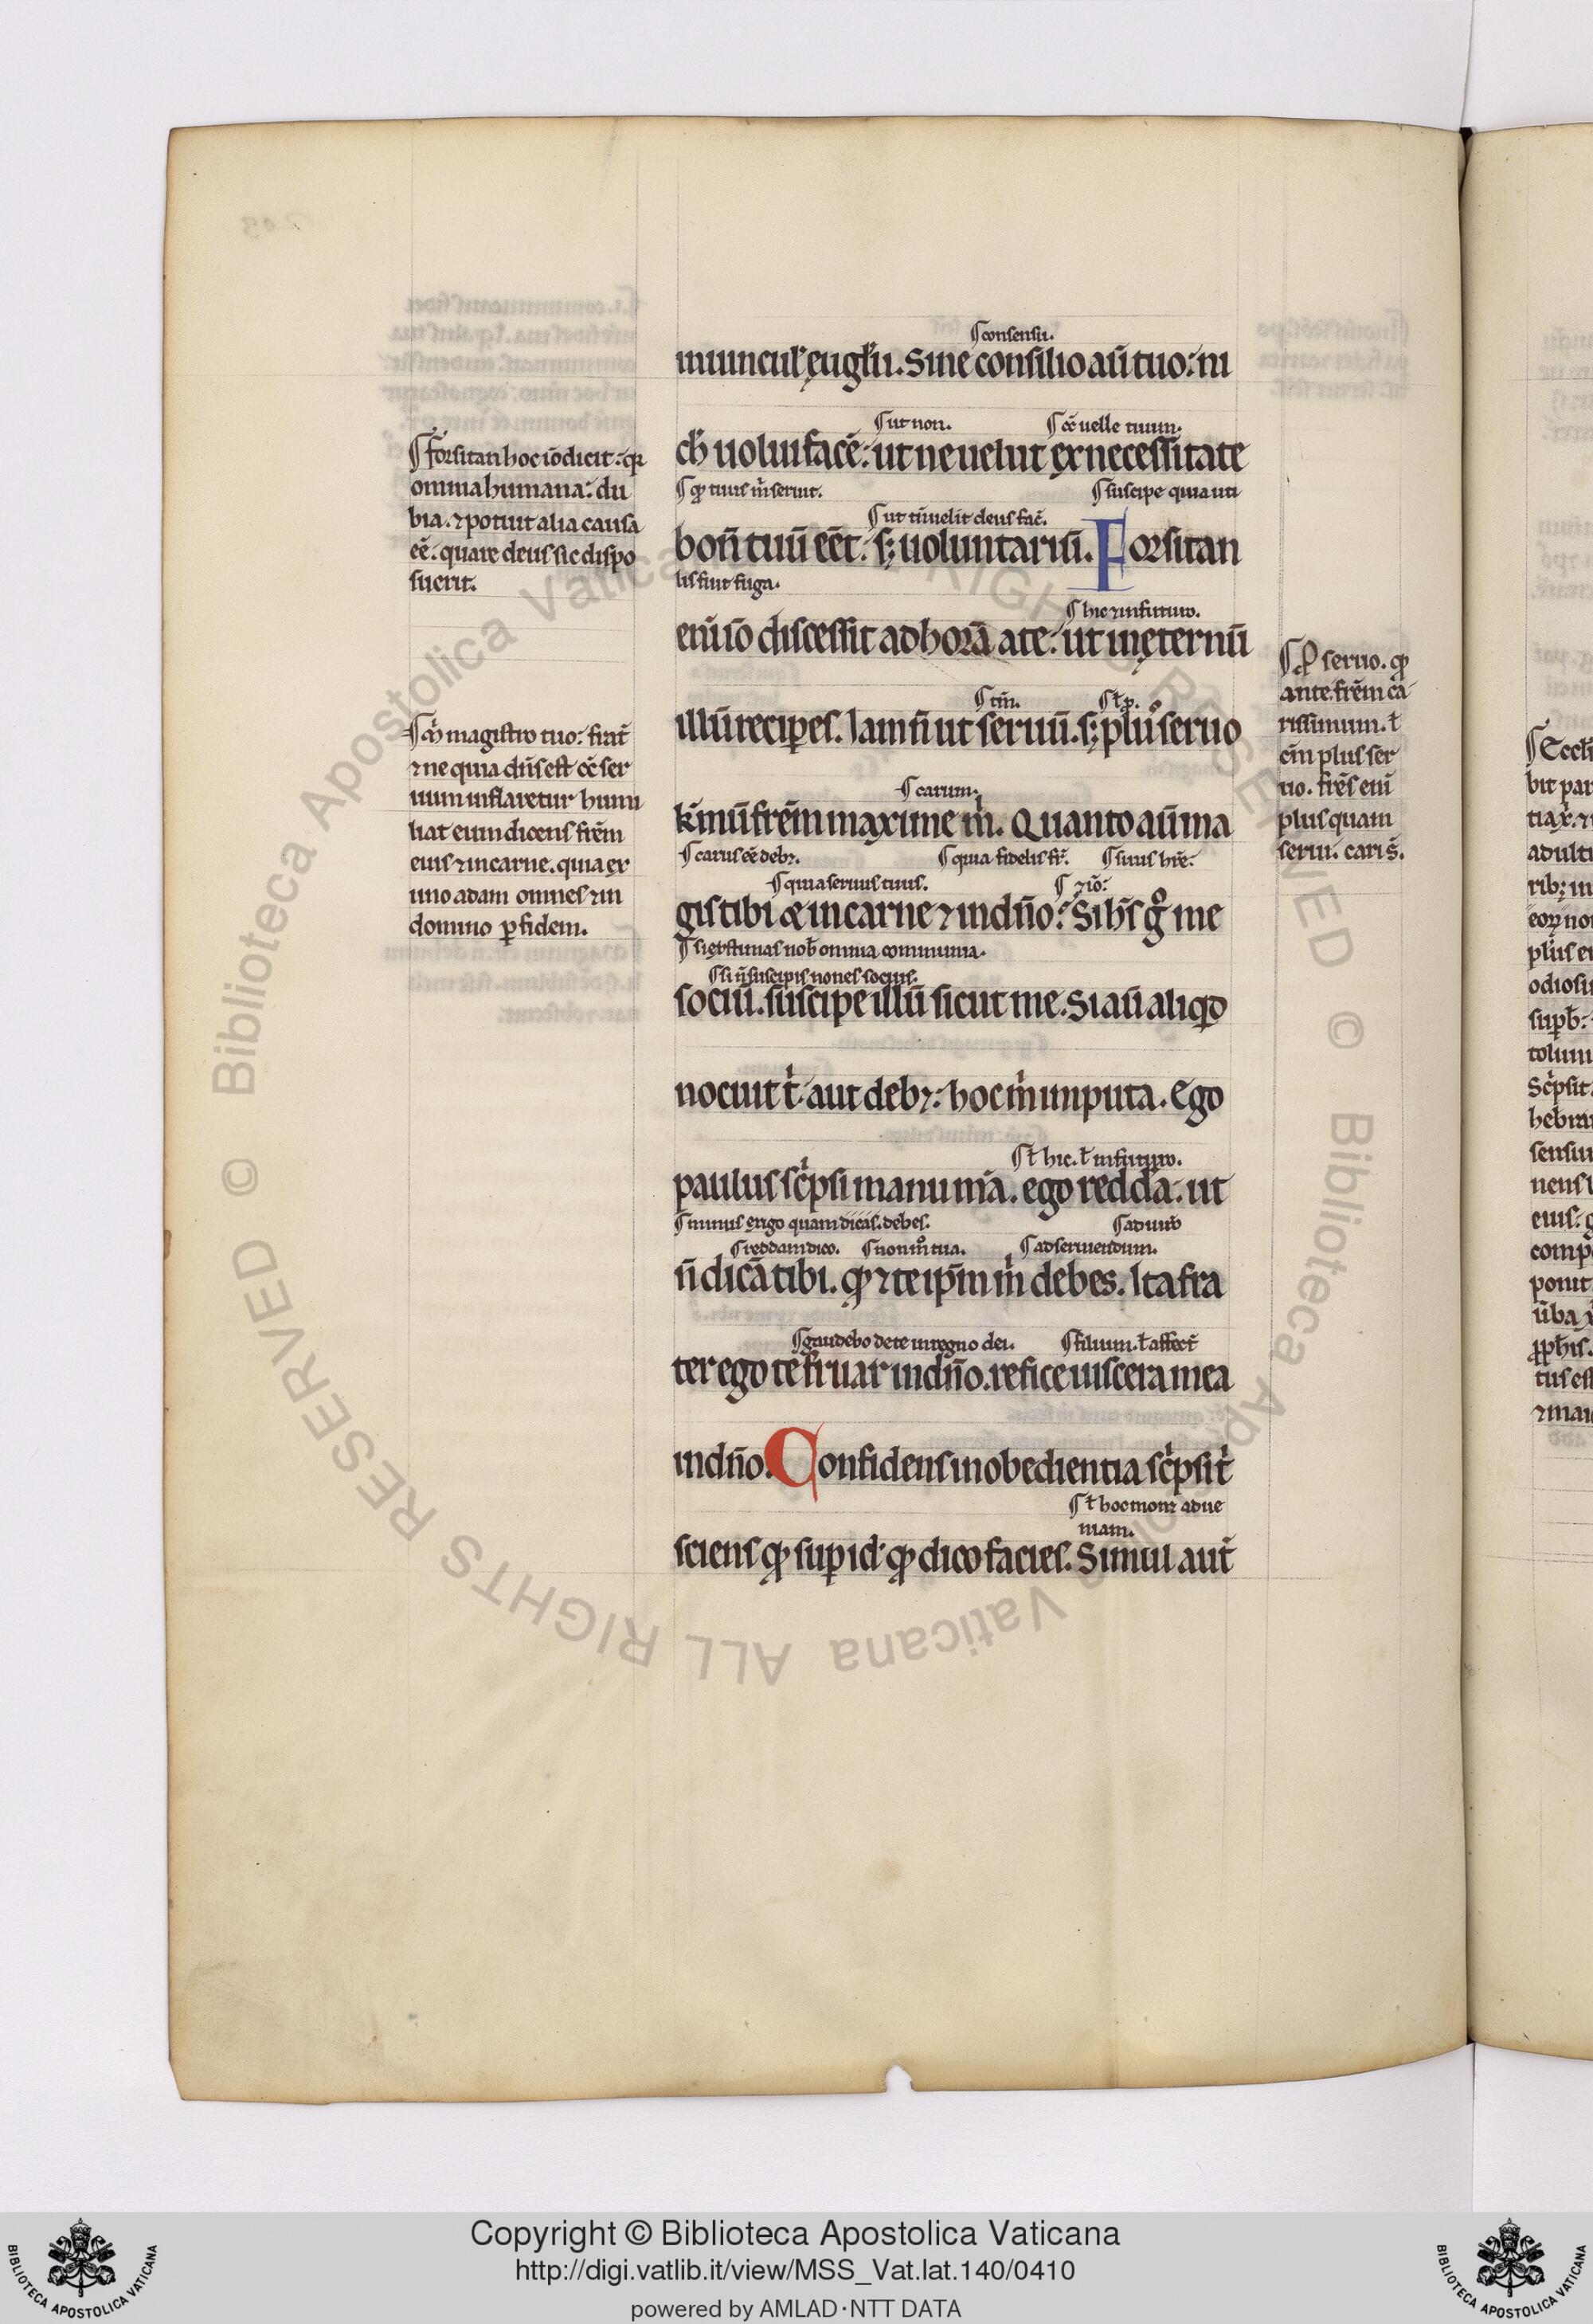 ¶consensu.
in uinculꝭ euglii. Sine consilio aū tuo: ni
¶ut non. ¶eē uelle tuum.
ch̄ uolui facē: ut ne uelut ex necessitate
¶qđ tuus m̄ seruit. ¶suscipe quia uti
¶ut tm̄ uelit deus fac̄.
bonū tuū eēt: sꝫ uoluntariū. Forsitan
lis fuit fuga.
¶hic ⁊ in futuro.
enī iō discessit ad horā a te: ut in ęternū
¶tm̄. ¶ł p.
illū recipes. Iam n̄ ut seruū. sꝫ plus seruo
¶carum.
kīmū frēm maxime m̍. Quanto aū ma
¶carus eē debꝫ. ¶quia fidelis fr̄. ¶suus hr̄e:
¶quia seruus tuus. ¶⁊ iō:
gis tibi ⁊ in carne ⁊ in dn̄o: Si habꝭ gͦ me
¶si existimas nob̄ omnia communia.
¶si n̄ suscipis non es socius.
sociū. suscipe illū sicut me. Si aū aliqđ
nocuit t̍ aut debꝫ: hoc m̍ imputa. Ego
¶ł hic. ł in futuro.
paulus sc̍psi manu mā. ego reddā: ut
¶minus ergo quam dicas. debes. ¶ad uitā
¶reddam dico. ¶non mͦ tua. ¶ad seruiendum.
n̄ dicā tibi. qđ ⁊ te ipm̄ m̍ debes. Ita fra
¶gaudebo de te in regno dei. ¶filium. ł affect̄
ter ego te fruar in dn̄o. refice uiscera mea
in dn̄o. Confidens in obedientia sc̍psi t̍
¶ł hoc monet adue
niam.
sciens qđ sup id qđ dico facies. Simul aut̄
¶Forsitan hoc iō dicit: qꝛ
omnia humana: du
bia. ⁊ potuit alia causa
eē. quare deus sic dispo
suerit.
magistro tuo: frat̄
⁊ ne quia dn̄s est eē ser
uum inflaretur humi
liat eum dicens frēm
eius ⁊ in carne. quia ex
uno adam omnes ⁊ in
domino ꝑ fidem.
¶P seruo. qđ
ante. frēm ca
rissimum. ł
enī plus ser
uo. frēs enī
plus quam
serui. cari s̄.
Copyright © Biblioteca Apostolica Vaticana
http://digi.vatlib.it/view/MSS_Vat.lat.140/0410
powered by AMLAD·NTT DATA